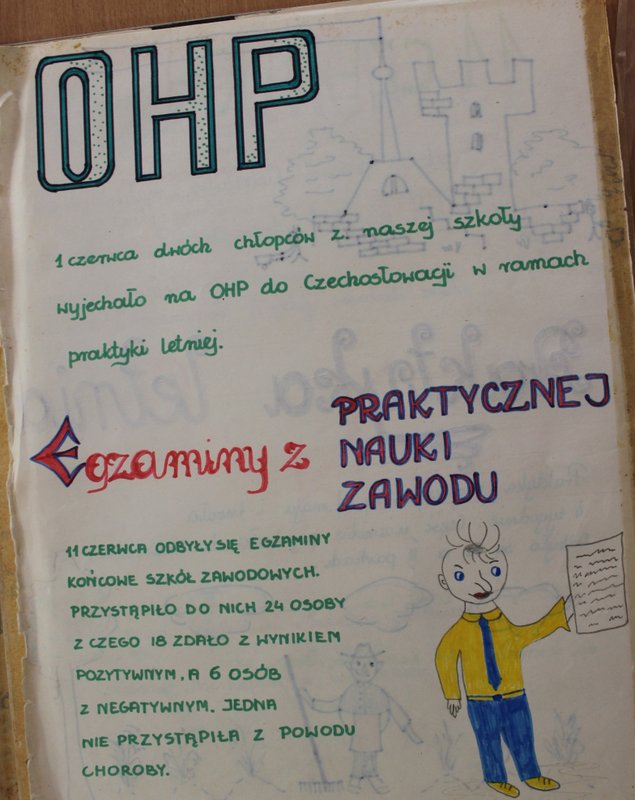 OHP
1 czerwca dwóch chłopców z naszej szkoły
wyjechało na OHP do Czechosłowacji w ramach
praktyki letniej.
Egzaminy z PRAKTYCZNEJ
NAUKI
ZAWODU
11 CZERWCA ODBYŁY SIĘ EGZAMINY
KOŃCOWE SZKÓŁ ZAWODOWYCH.
PRZYSTĄPIŁO DO NICH 24 OSOBY
Z CZEGO 18 ZDAŁO Z WYNIKIEM
POZYTYWNYM, A 6 OSÓB
Z NEGATYWNYM. JEDNA
NIE PRZYSTĄPIŁA Z POWODU
CHOROBY.